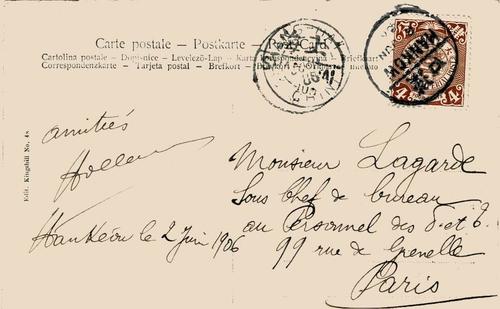 Carte postale – Postkarte – Post Card
Cartolina postale – Dopisnice – Levelező-Lap – Karta
Correspondenzkarte – Tarjeta postal – Brefkort
HANKOW
4 4
Edit. Kingshill No. 4a
amitiés
Hankéou le 2 Juin 1906
Monsieur Lagarde
Sous Chef de bureau
au Personnel des P. et T.
99 rue de Grenelle
Paris